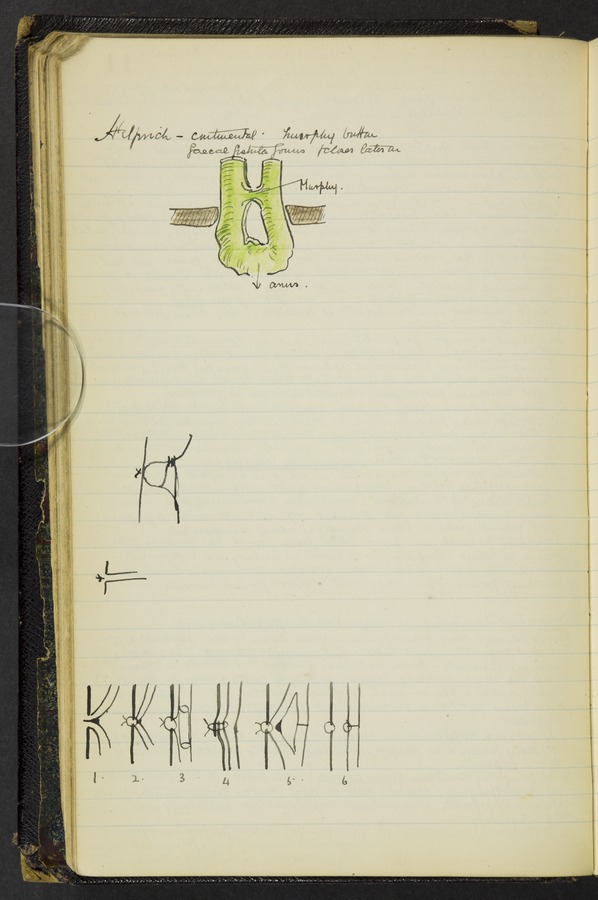 Helprich - continental. Murphy button
faecal fistula forms closes later on
Murphy.
anus.
1. 2. 3 4 5. 6